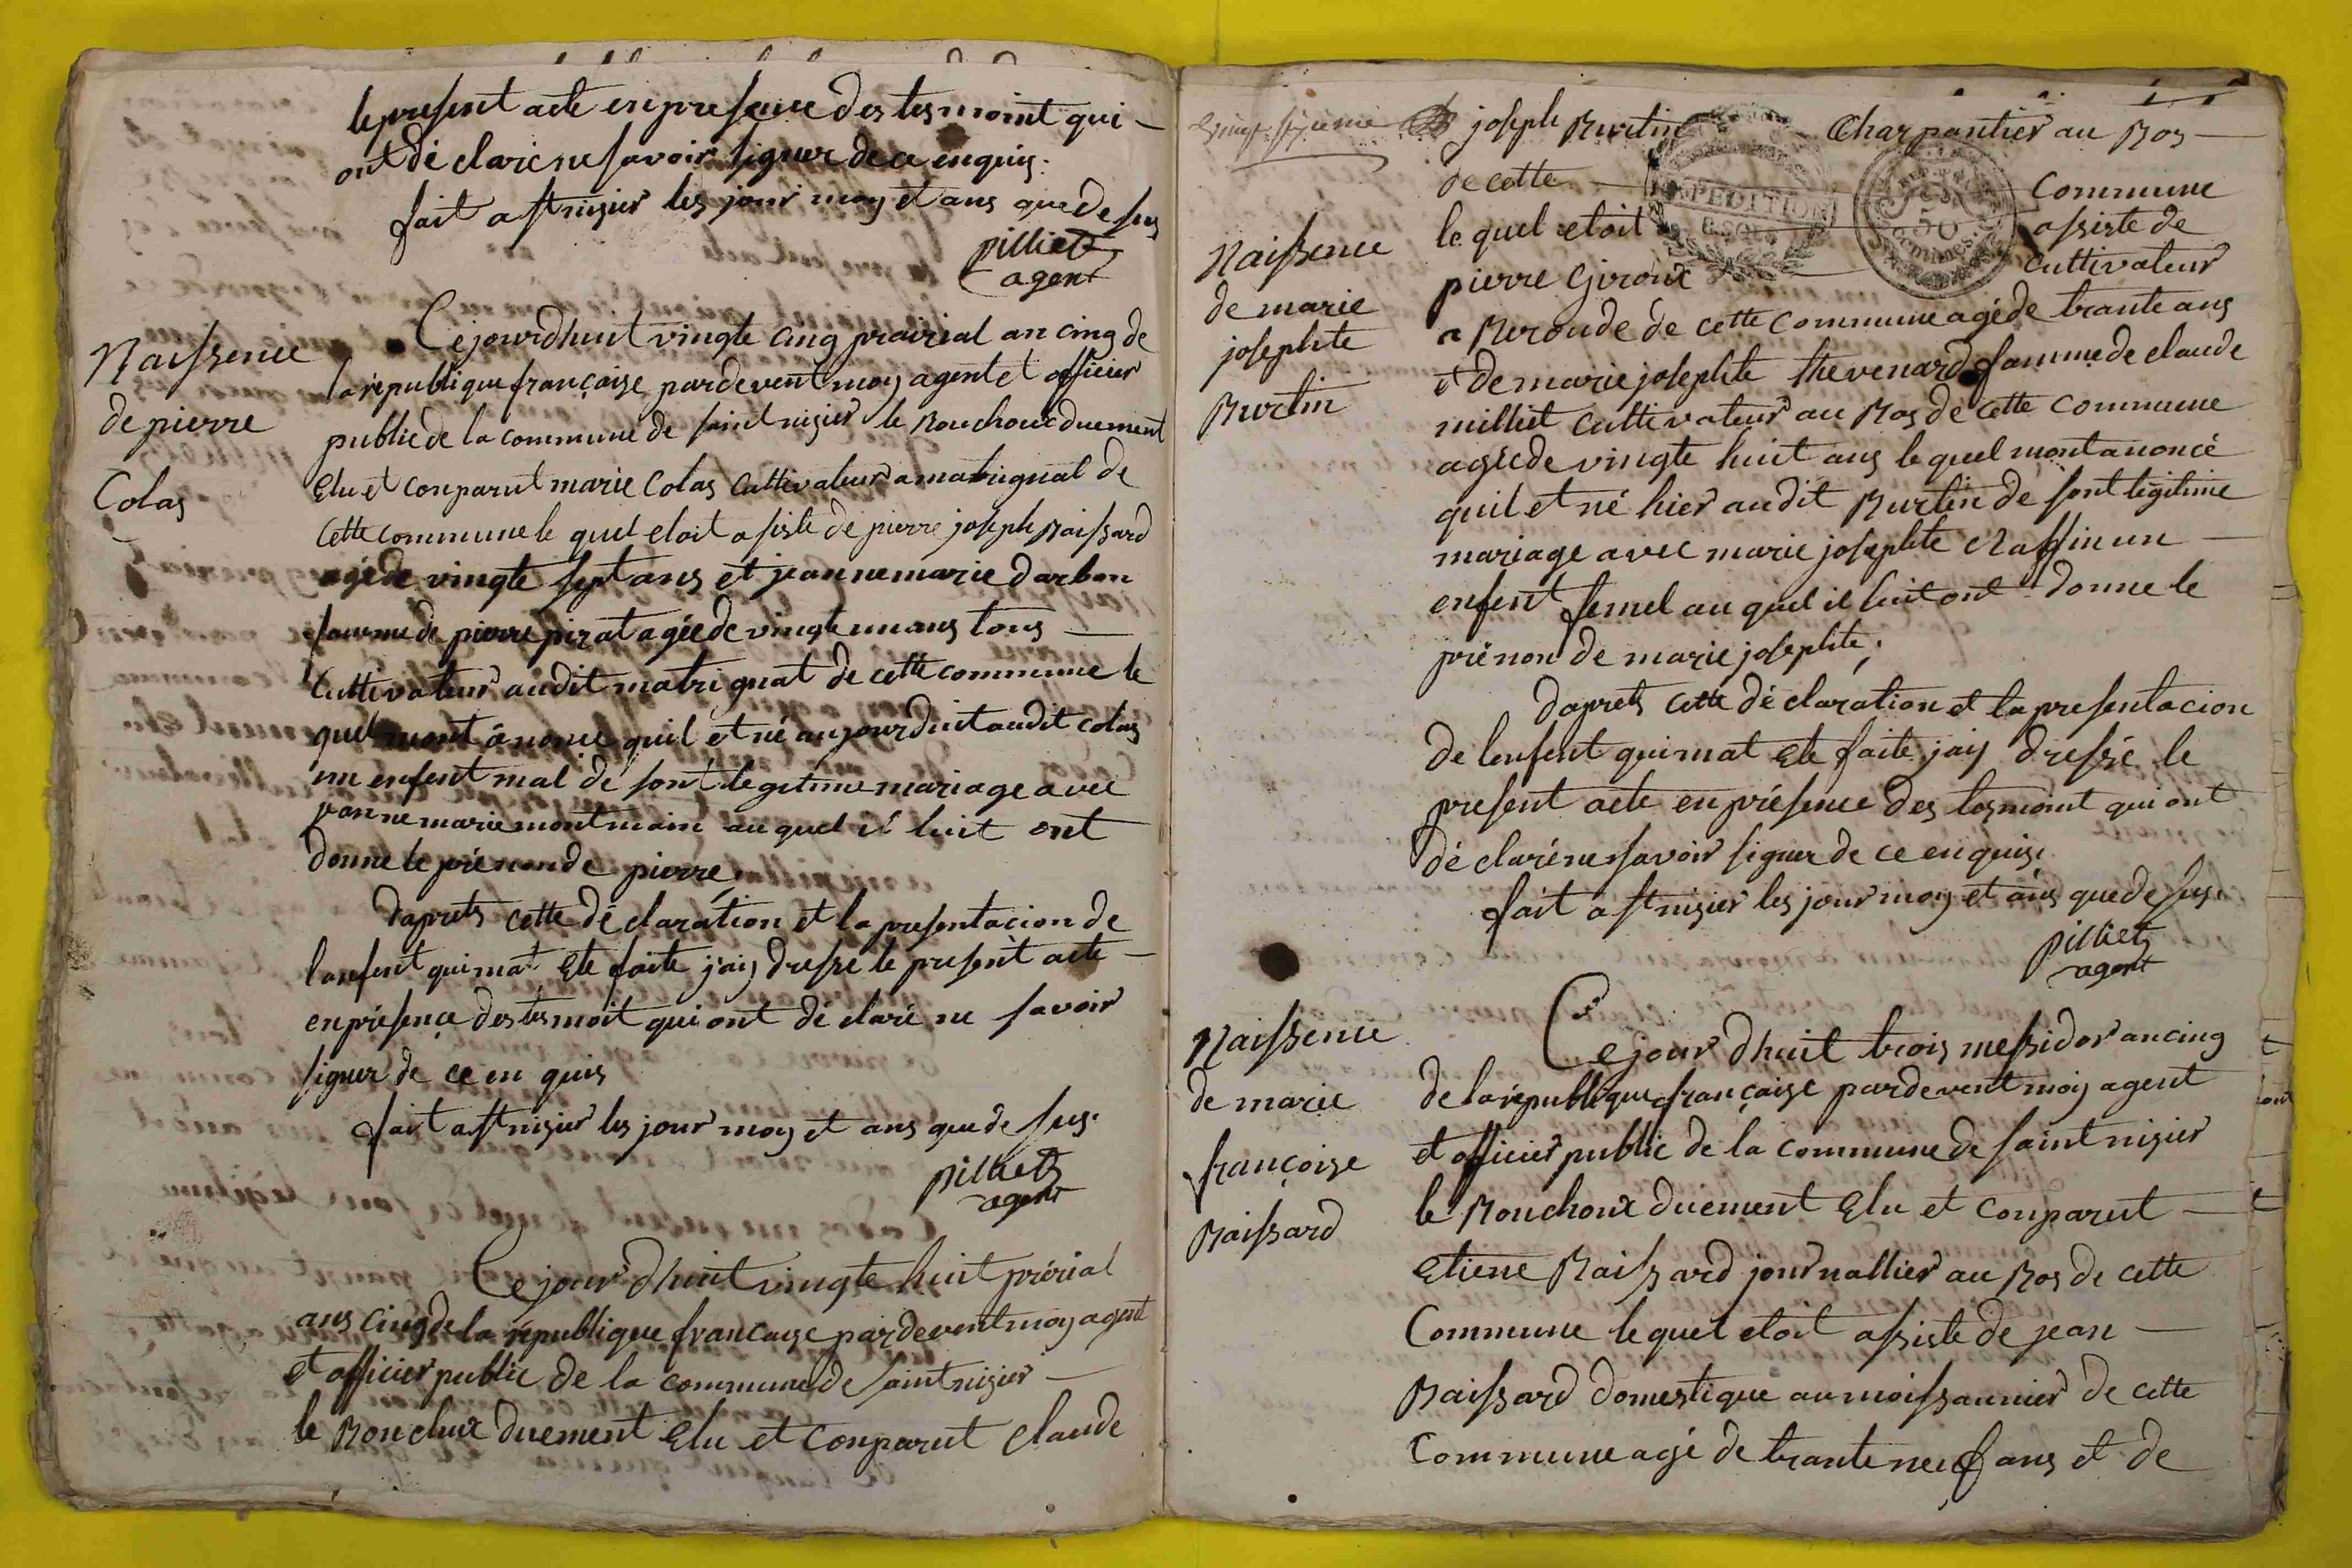 le present acte en presence des tesmoint qui
ont déclaré ne savoir signer de ce enquis.
fait a st nizier les jour moy et ans que de sus
pilliet
agent
Naissence
de pierre
Colas
Cejourdhuit vingte cinq prairial an cinq de
la republique françaize pardevent moy agent et officier
public de la commune de saint nizier le Bouchoux duement
Elu et conparut marie Colas Cultivateur a matrignat de
Cette commune le quel etoit asisté de pierre joseph Baissard
agé de vingte sept ans et jeanne marie darbon
famme de pierre pirat agée de vingte un ans tous
Cultivateur audit matrignat de cette commune le
quel mont anoncé quil et né aujourduit audit colas
un enfent mal de sont legitime mariage avec
jeanne marie montmain au quel il luit ont
donne le prénon de pierre
Daprets cette déclaration et la presentacion de
lanfent qui mat Eté faite jaiy dressé le present acte
en présence des tesmoit qui ont déclaré ne savoir
signer de ce en quis
fait a st nizier les jour moy et ans que de sus.
pilliet
agent
Ce jour dhuit vingte huit prérial
ans cinq de la republique francaize pardevent moy agent
et officier public de la commune de saint nizier
le Bouchux duement Elu et conparut claude
vingt sizieme
joseph Burtin Charpantier au Bos
de cette Commune
EXPEDITION
50
centimes
le quel etoit assiste de
pierre Giroux cultivateur
a Beroude de cette commune agé de trante ans
et de marie josephte thevenard famme de claude
milliet cultivateur au Bos de cette commune
agée de vingte huit ans le quel mont anoncé
quil et né hier audit Burtin de sont legitime
mariage avec marie josephte Raffin un
enfent femel au quel il luit ont donne le
prénon de marie josephte;
Naissence
de marie
josephte
Burtin
daprets cette déclaration et la presentacion
de lenfent qui mat Eté faite jaiy dressé le
present acte en présence des tesmoint qui ont
déclaré ne savoir signer de ce en quis.
fait a st nizier les jour moy et ans que de sus.
pilliet
agent
Naissence
de marie
françoize
Baissard
Ce jour dhuit trois messidor an cinq
de la republique françaize pardevent moy agent
et officier public de la commune de saint nizier
le Bouchoux duement Elu et conparut
Etiene Baissard journallier au Bos de cette
Commune le quel etoit assiste de jean
Baissard domestique au moissonnier de cette
Commune agé de trante neuf ans et de